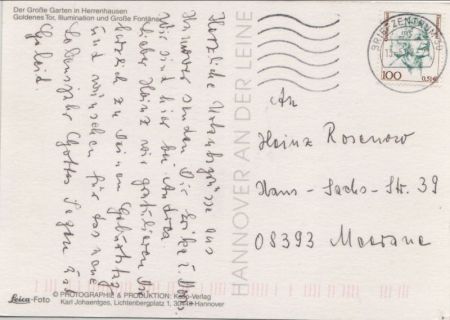 Der Große Garten in Herrenhausen
Goldenes Tor, Illumination und Große Fontäne
Herzliche Urlaubsgrüsse aus
Hannover senden Dir Erika u.
Wir sind hier bei Andrea.
Lieber Heinz wir gratulieren Dir
herzlich zu Deinem Geburtstag
und wünschen für das neue
Lebensjahr Gottes Segen u.
HANNOVER AN DER LEINE
BRIEFZENTRUM
100
0,51€
An
Heinz Rosenow
Hans-Sachs-Str. 39
08393 Meerane
Leica-Foto
© PHOTOGRAPHIE & PRODUKTION: Verlag
Karl Johaentges, Lichtenbergplatz 1, 30449 Hannover